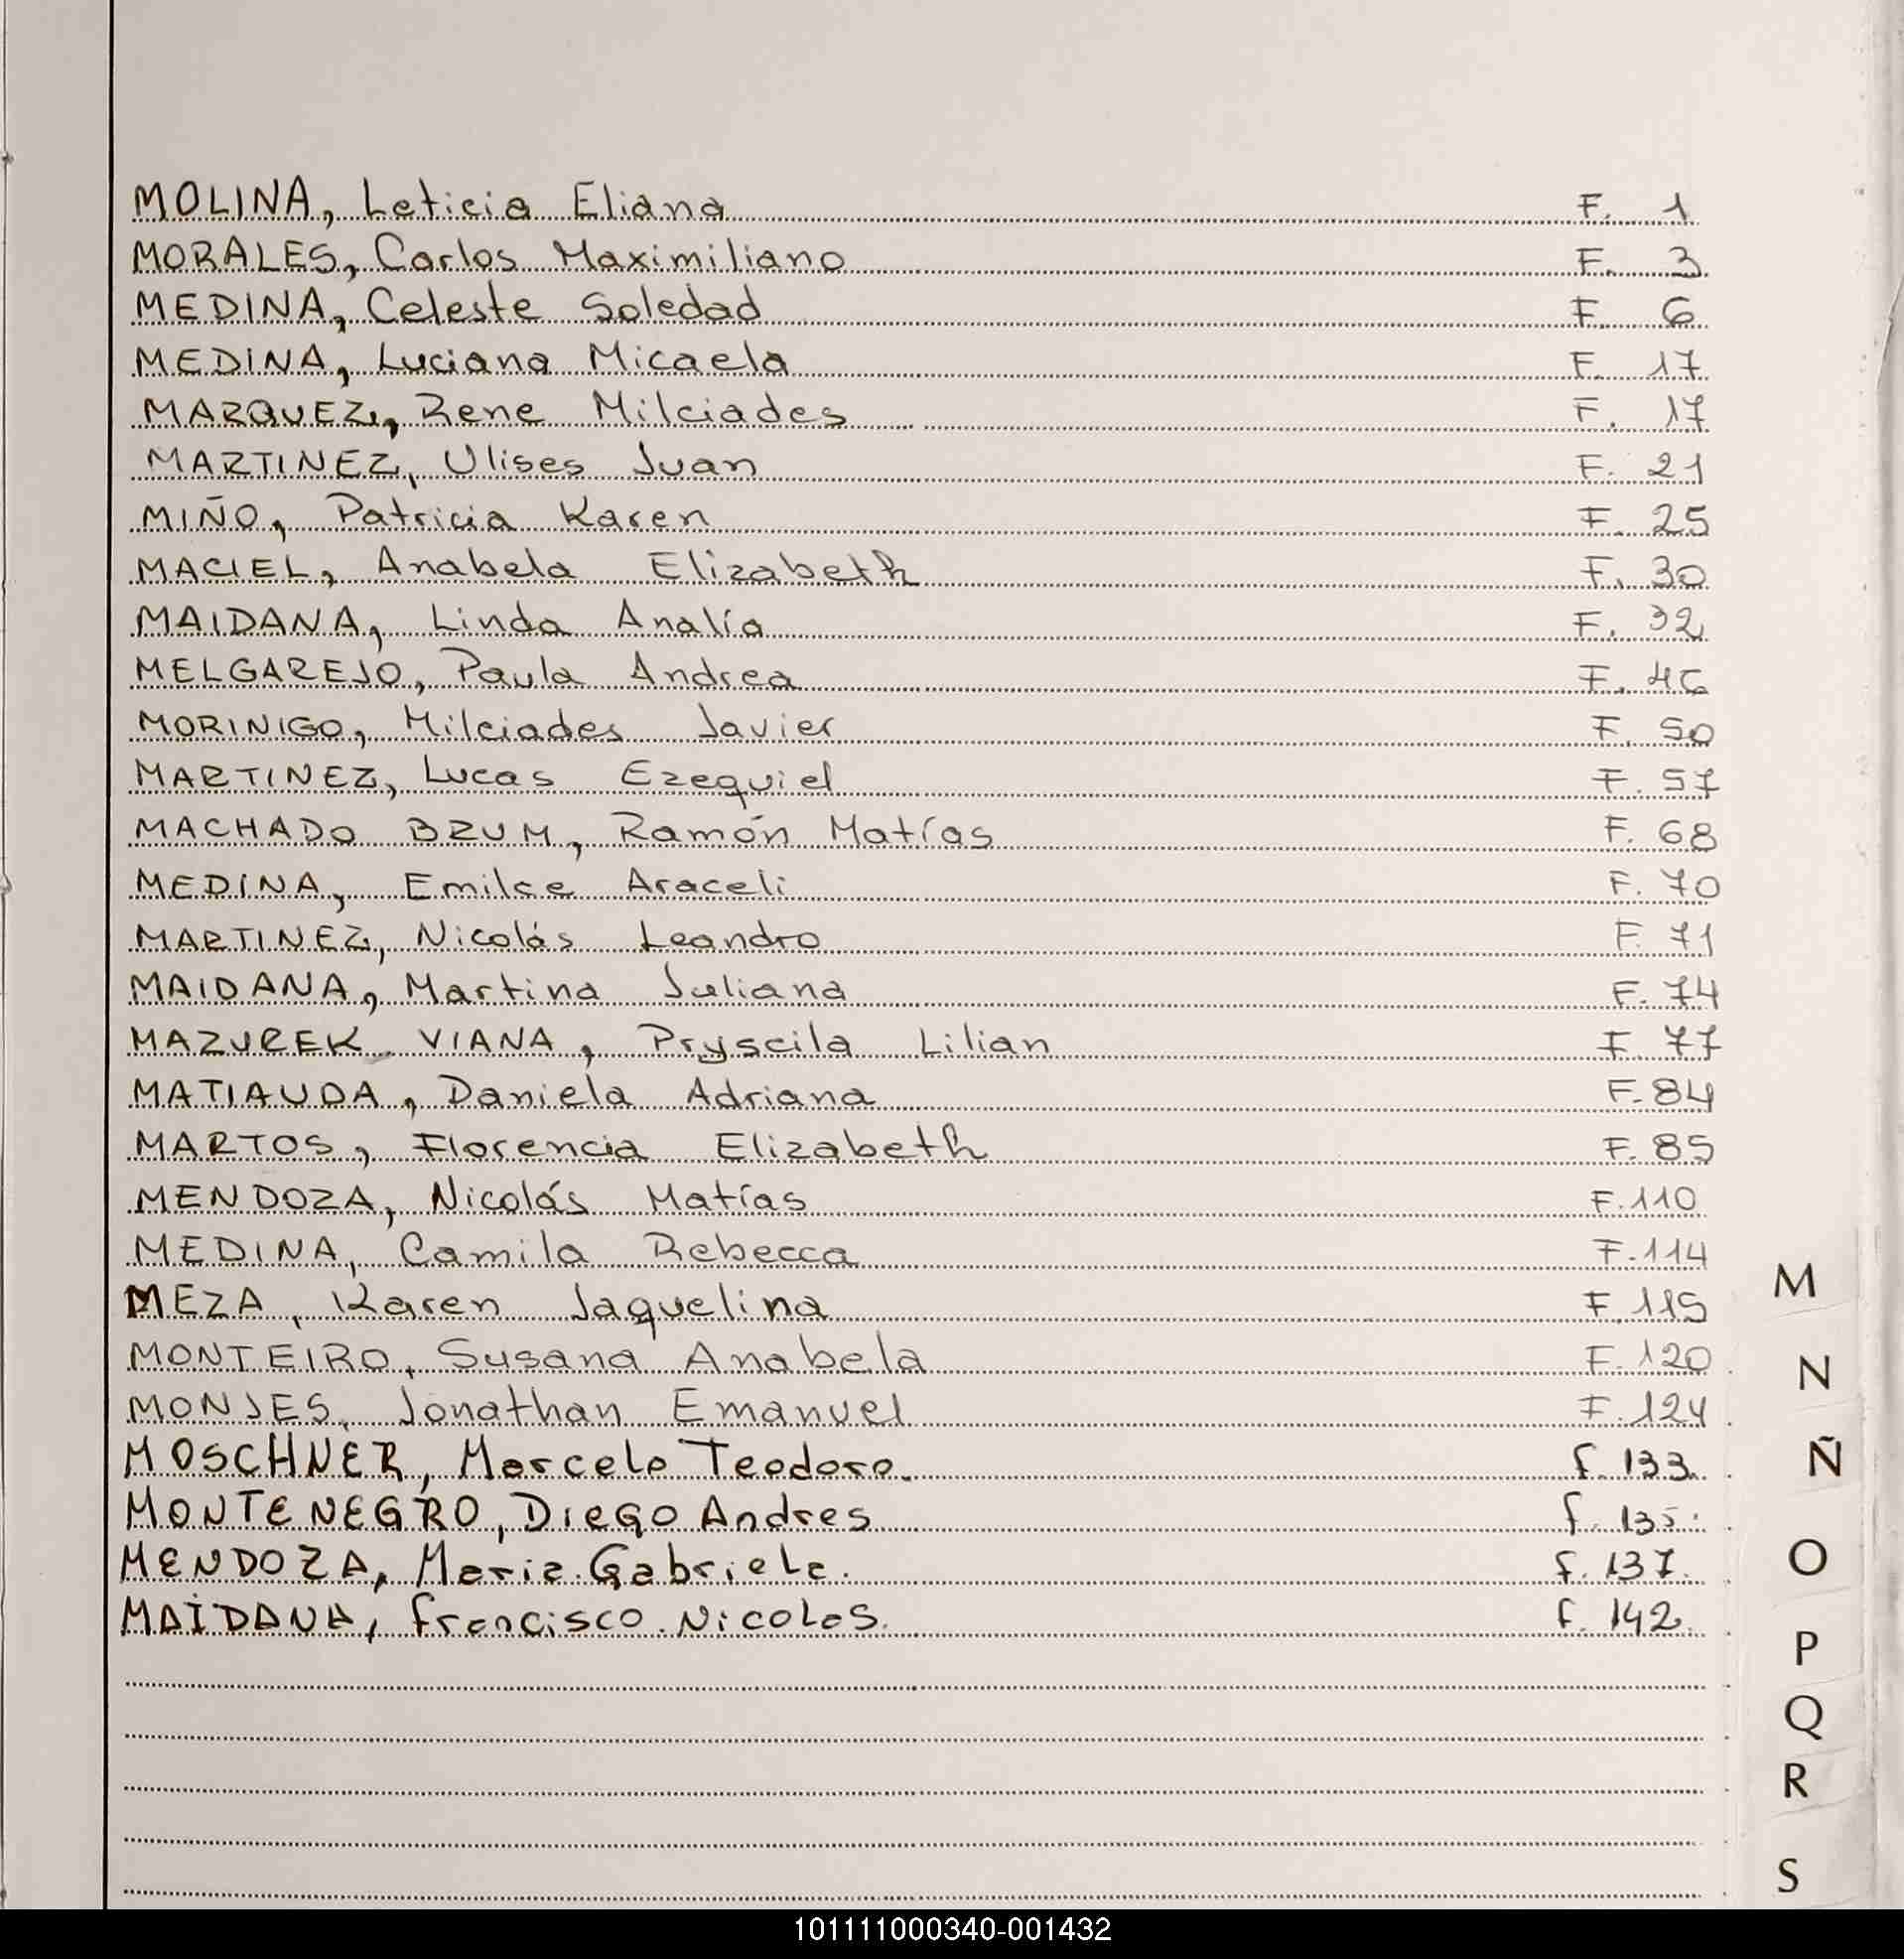 MOLINA, Leticia Eliana F. 1
MORALES, Carlos Maximiliano F. 3
MEDINA, Celeste Soledad F. 6
MEDINA, Luciana Micaela F. 17
MARQUEZ, Rene Milciades F. 17
MARTINEZ, Ulises Juan F. 21
MIÑO, Patricia Karen F. 25
MACIEL, Anabela Elizabeth F. 30
MAIDANA, Linda Analía F. 32
MELGAREJO, Paula Andrea F. 46
MORINIGO, Milciades Javier F. 50
MARTINEZ, Lucas Ezequiel F. 57
MACHADO BRUM, Ramón Matías F. 68
MEDINA, Emilse Araceli F. 70
MARTINEZ, Nicolás Leandro F. 71
MAIDANA, Martina Juliana F. 74
MAZUREK VIANA, Pryscila Lilian F. 77
MATIAUDA, Daniela Adriana F. 84
MARTOS, Florencia Elizabeth F. 85
MENDOZA, Nicolás Matías F. 110
MEDINA, Camila Rebecca F. 114
MEZA, Karen Jaquelina F. 115
MONTEIRO, Susana Anabela F. 120
MONJES, Jonathan Emanuel F. 124
MOSCHNER, Marcelo Teodoro. f. 133.
MONTENEGRO, Diego Andres f. 135.
MENDOZA, Maria Gabriela. f. 137.
MAIDANA, francisco Nicolas. f. 142.
M
N
Ñ
O
P
Q
R
S
101111000340-001432